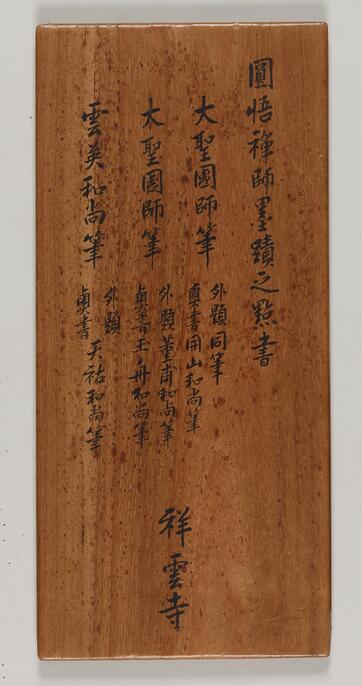 圓悟禅師墨蹟之點書
大聖國師筆
外題同筆
奥書開山和尚筆
大聖國師筆
外題董甫和尚筆
奥書玉舟和尚筆
雲英和尚筆
外題
奥書天祐和尚筆
祥雲寺